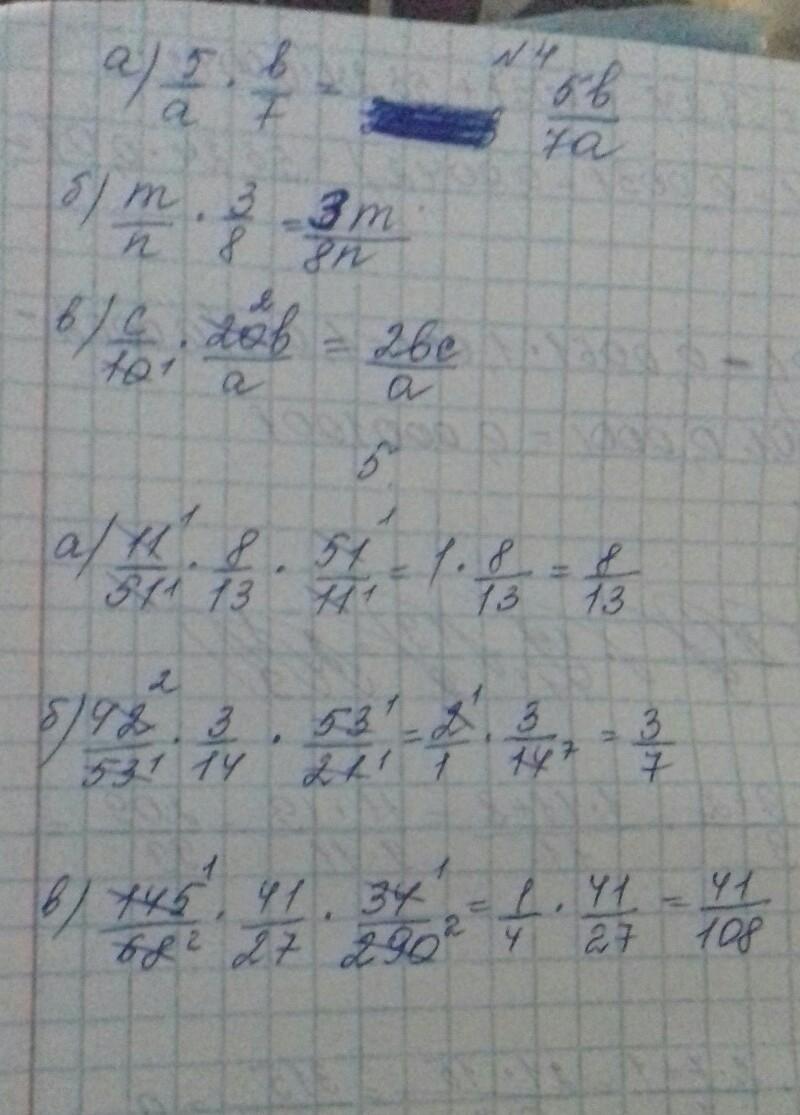 №4
а) 5/a · b/7 = 5b/7a
б) m/n · 3/8 = 3m/8n
в) c/10 1 · 20 2 b/a = 2bc/a
5
а) 11 1/51 1 · 8/13 · 51 1/11 1 = 1 · 8/13 = 8/13
б) 42 2/53 1 · 3/14 · 53 1/21 1 = 2 1/1 · 3/14 7 = 3/7
в) 145 1/68 2 · 41/27 · 34 1/290 2 = 1/4 · 41/27 = 41/108